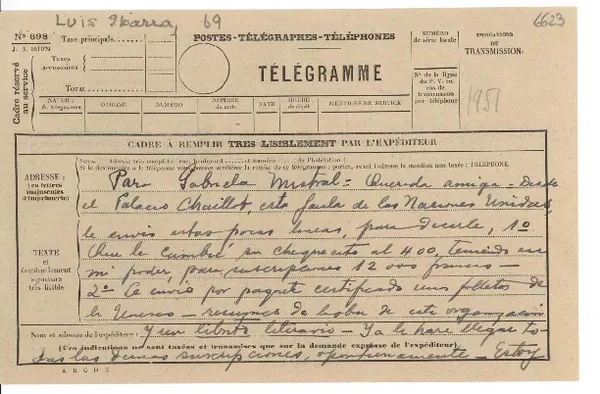 Luis Ybarra 69
6623
N° 698
J. A. 821029
Cadre réservé au service
Taxe principale
Taxes accessoires
Total
POSTES-TÉLÉGRAPHES-TÉLÉPHONES
TÉLÉGRAMME
NUMÉRO de série locale
N° de la ligne du P. V. ou cas de transmission par téléphone
INDICATIONS DE TRANSMISSION
1951
NATURE du télégramme ORIGINE NUMÉRO NOMBRE de mots DATE HEURE de dépôt MENTIONS DE SERVICE
CADRE A REMPLIR TRES LISIBLEMENT PAR L'EXPÉDITEUR
ADRESSE: (en lettres majuscules d'imprimerie)
TEXTE et éventuellement signature très lisible
Para Gabriela Mistral = Querida amiga = Desde
el Palacio Chaillot, esta jaula de las Naciones Unidas,
le envio estas pocas lineas, para decirle, 1º
Que le cambié su chequecito al 400, teniendo en
mi poder para suscripciones 12 000 francos —
2º Le envio por paquete certificado unos folletos de
la Unesco — resumen de labor de esta organización
Nom et adresse de l'expéditeur: Y un librito literario — Ya le haré llegar to-
(Ces indications ne sont taxées et transmises que sur la demande expresse de l'expéditeur.)
das las demas suscripciones, oportunamente — Estoy
A B C D E